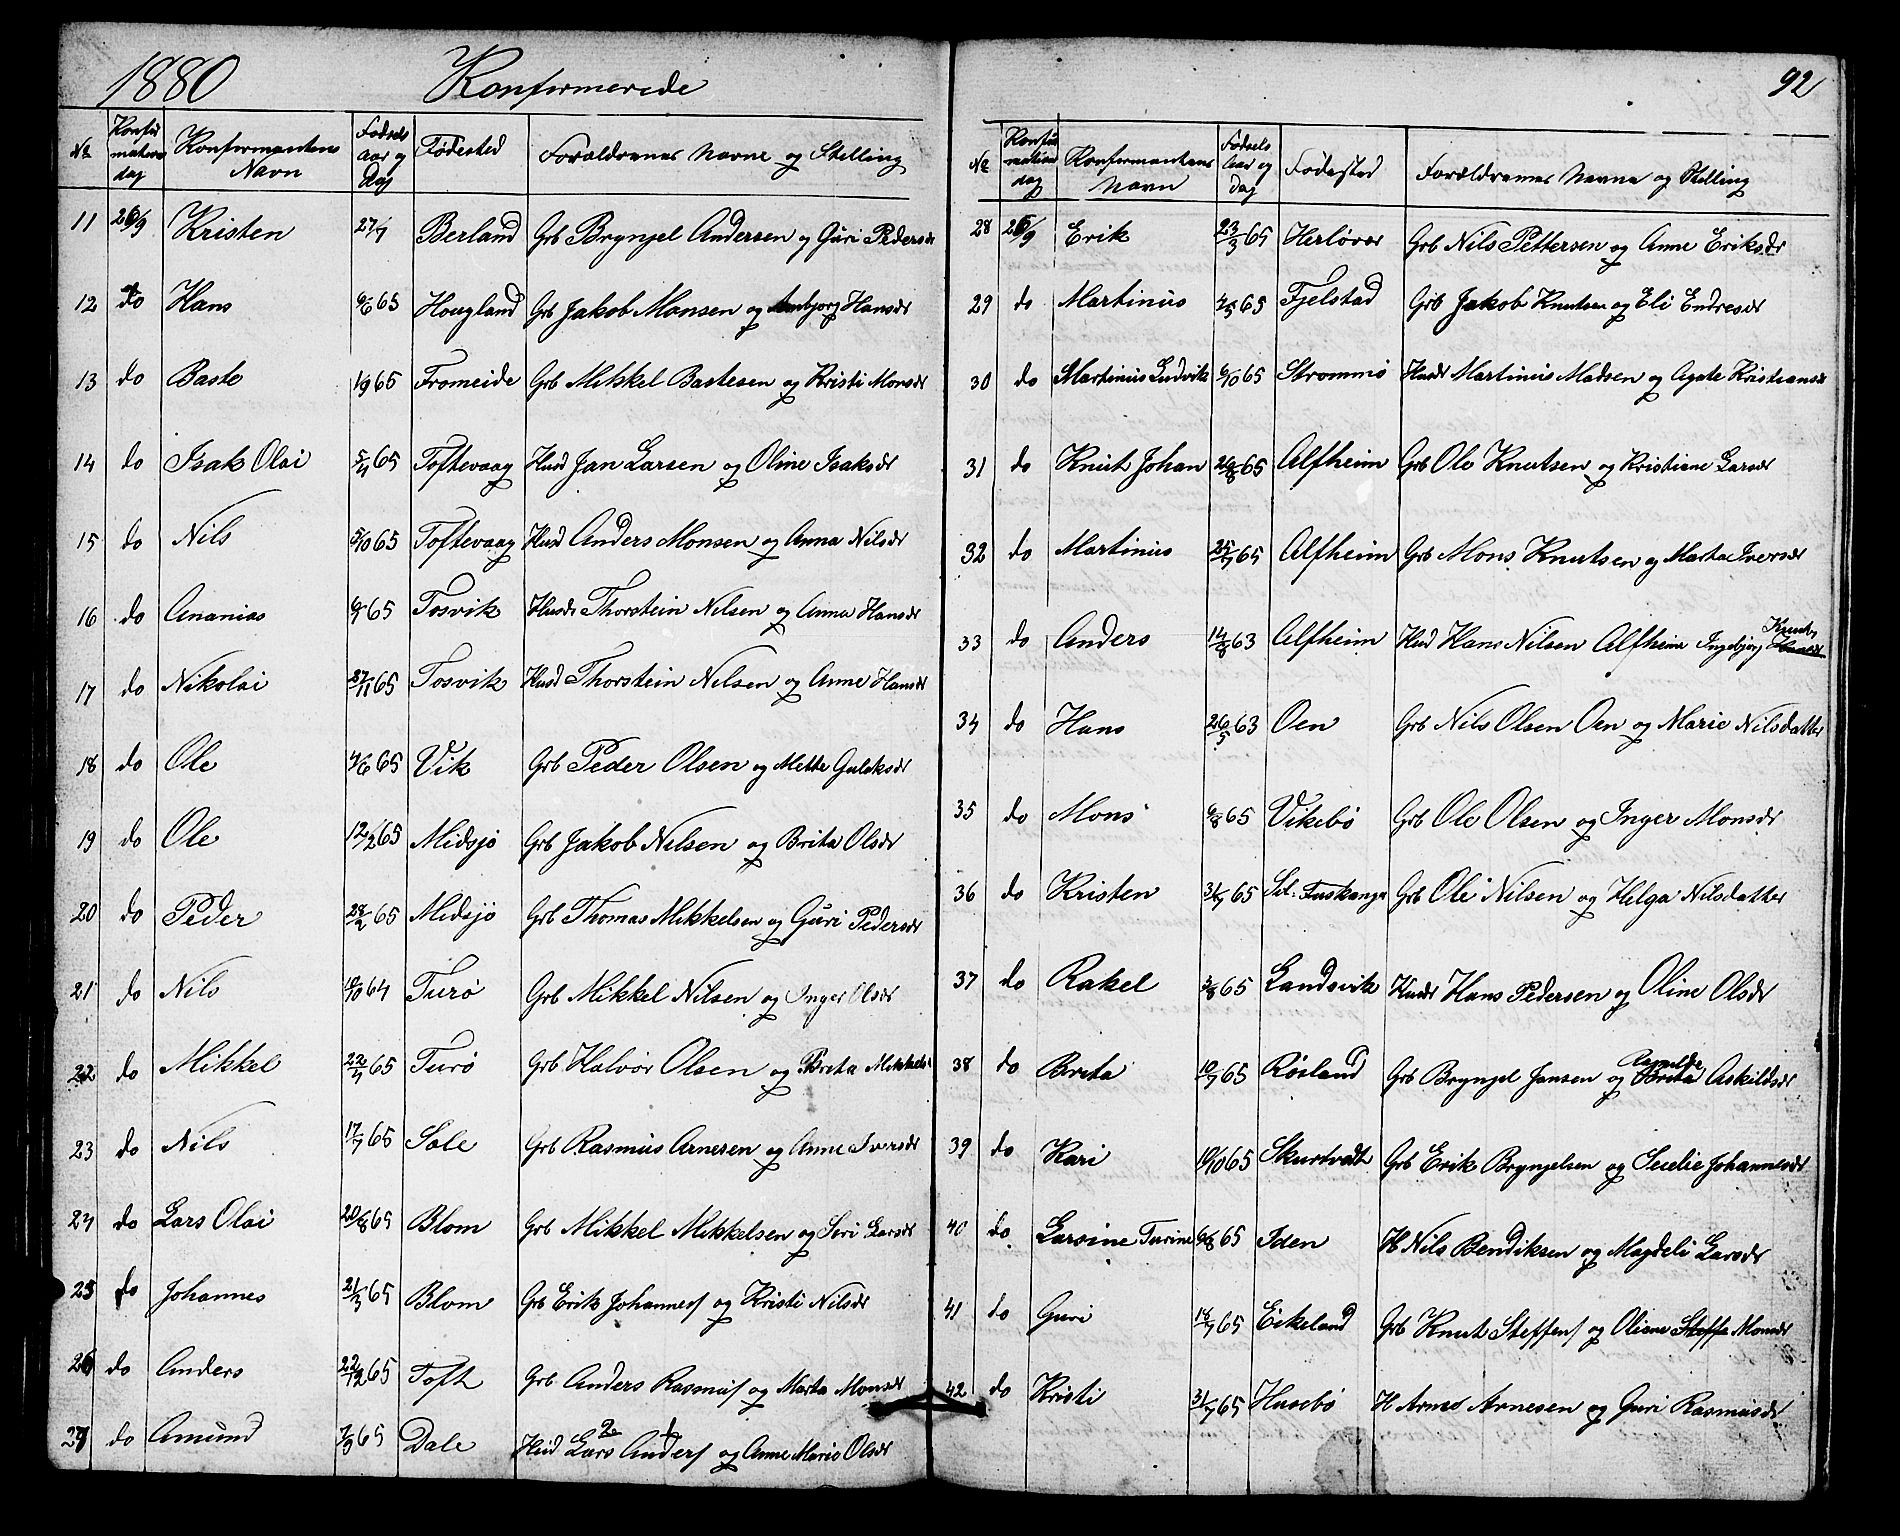 1880 Konfirmerede
No Konfirmations dag Konfirmantens Navn Fødsels aar og Dag Fødested Forældrenes Navne og Stilling
11 26/9 Kristen 27/7 Berland Grb Brynjel Andersen og Guri Pedersdr
12 do Hans 6/6 65 Hougland Grb Jakob Monsen og Hansdr
13 do Baste 1/9 65 Fromeide Grb Mikkel Bastesen og Kristi Monsdr
14 do Isak Olai 65 Toftevaag Husd Jan Larsen og Oline Isaksdr
15 do Nils 5/10 65 Toftevaag Husd Anders Monsen og Anna Nilsdr
16 do Ananias 65 Tosvik Husd Thorstein Nilsen og Anna Hansdr
17 do Nikolai 27/11 65 Tosvik Husd Thorstein Nilsen og Anne Hansdr
18 do Ole 4/6 65 Vik Grb Peder Olsen og Mette Gulaksdr
19 do Ole 12/2 65 Midsjø Grb Jakob Nilsen og Brita Olsdr
20 do Peder 28/2 65 Midsjø Grb Thomas Mikkelsen og Guri Pedersdr
21 do Nils 64 Turø Grb Mikkel Nilsen og Inger Olsdr
22 do Mikkel 22/7 65 Turø Grb Halvor Olsen og Brita Mikkelsd
23 do Nils 17/7 65 Sole Grb Rasmus Arnesen og Anne Iversdr
24 do Lars Olai 20/8 65 Blom Grb Mikkel Mikkelsen og Siri Larsdr
25 do Johannes 21/3 65 Blom Grb Erik Johannes/ og Kristi Nilsdr
26 do Anders 22/12 65 Toft Grb Anders Rasmus/ og Marta Monsdr
27 do Amund 7/9 65 Dale Husd Lars Anders/ og Anne Marie Olsdr
92
No Konfirmations dag Konfirmantens Navn Fødsels Aar og Dag Fødested Forældrenes Navne og Stilling
28 26/9 Erik 23/3 65 Herløver Grb Nils Pettersen og Anne Eriksdr
29 do Martinus 65 Fjelstad Grb Jakob Knutsen og Eli Endresdr
30 do Martinus Ludvik 6/10 65 Strømmø Husdr Martinus Madsen og Agate Kristiansdr
31 do Knut Johan 26/8 65 Alfheim Grb Ole Knutsen og Kristiane Larsdr
32 do Martinus 25/7 65 Alfheim Grb Mons Knutsen og Marta Iversdr
33 do Anders 14/8 63 Alfheim Husd Hans Nilsen Alfheim Ingebjorg Knuts
34 do Hans 26/5 63 Oen Grb Nils Olsen Oen og Marie Nilsdatter
35 do Mons 6/8 65 Vikebø Grb Ole Olsen og Inger Monsdr
36 do Kristen 31/7 65 Grb Ole Nilsen og Helga Nilsdatter
37 do Rakel 3/8 65 Landsvik Husdr Hans Pedersen og Oline Olsdr
38 do Brita 10/7 65 Røsland Grb Brynjel Jansen og Ragnilde Brita Askildsdr
39 do Kari 10/10 65 Skurtvedt Grb Erik Brynjelsen og Secelie Johannesdr
40 do Larsine Turine 65 Iden H Nils Bendiksen og Magdeli Larsdr
41 do Guri 18/7 65 Eikeland Grb Knut Steffens/ og Oliane Steffs Monsdr
42 do Kristi 31/7 65 Husebø H Arne Arnesen og Guri Rasmusdr